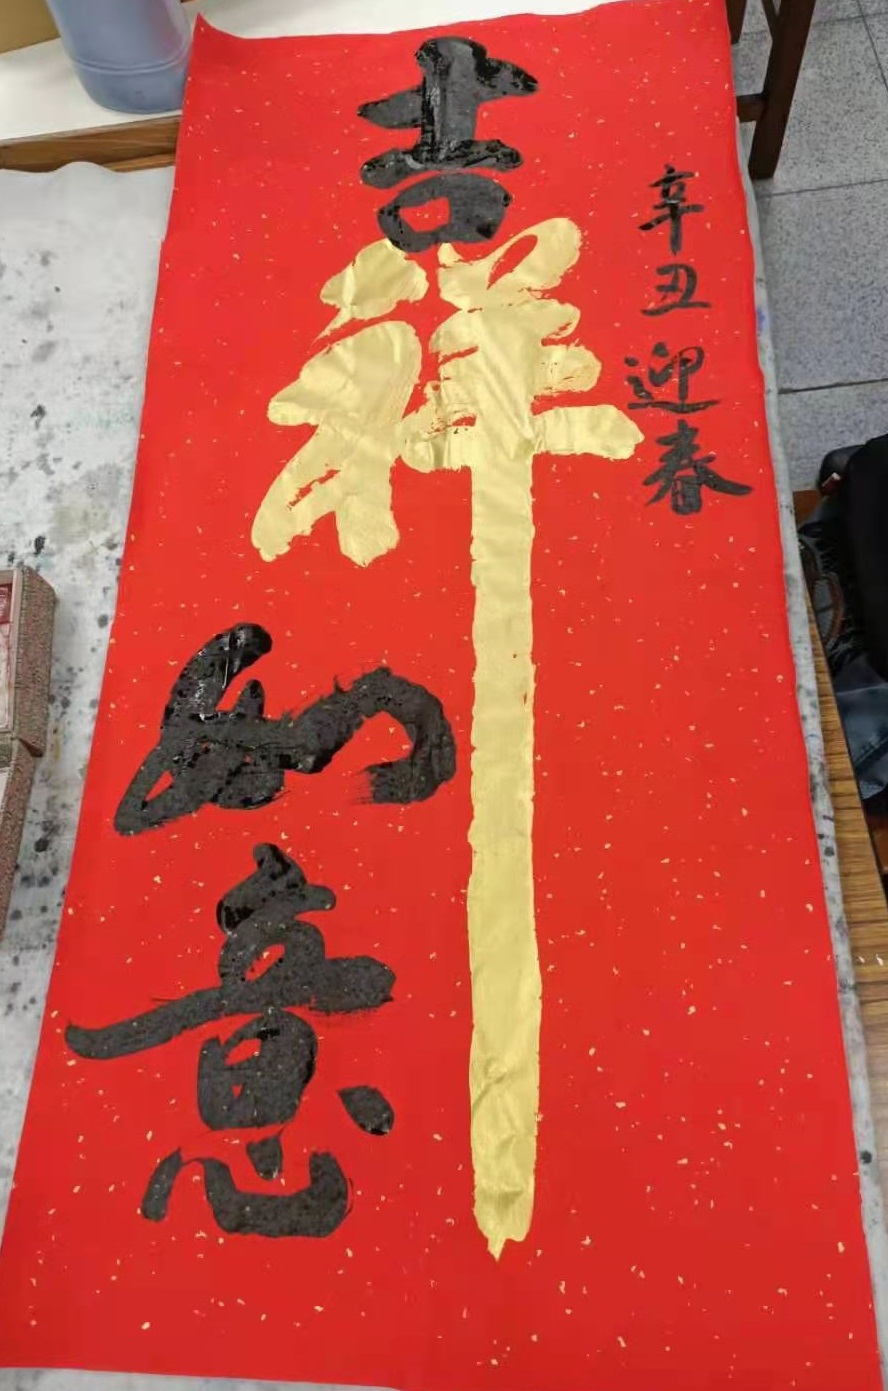 吉祥如意
辛丑迎春